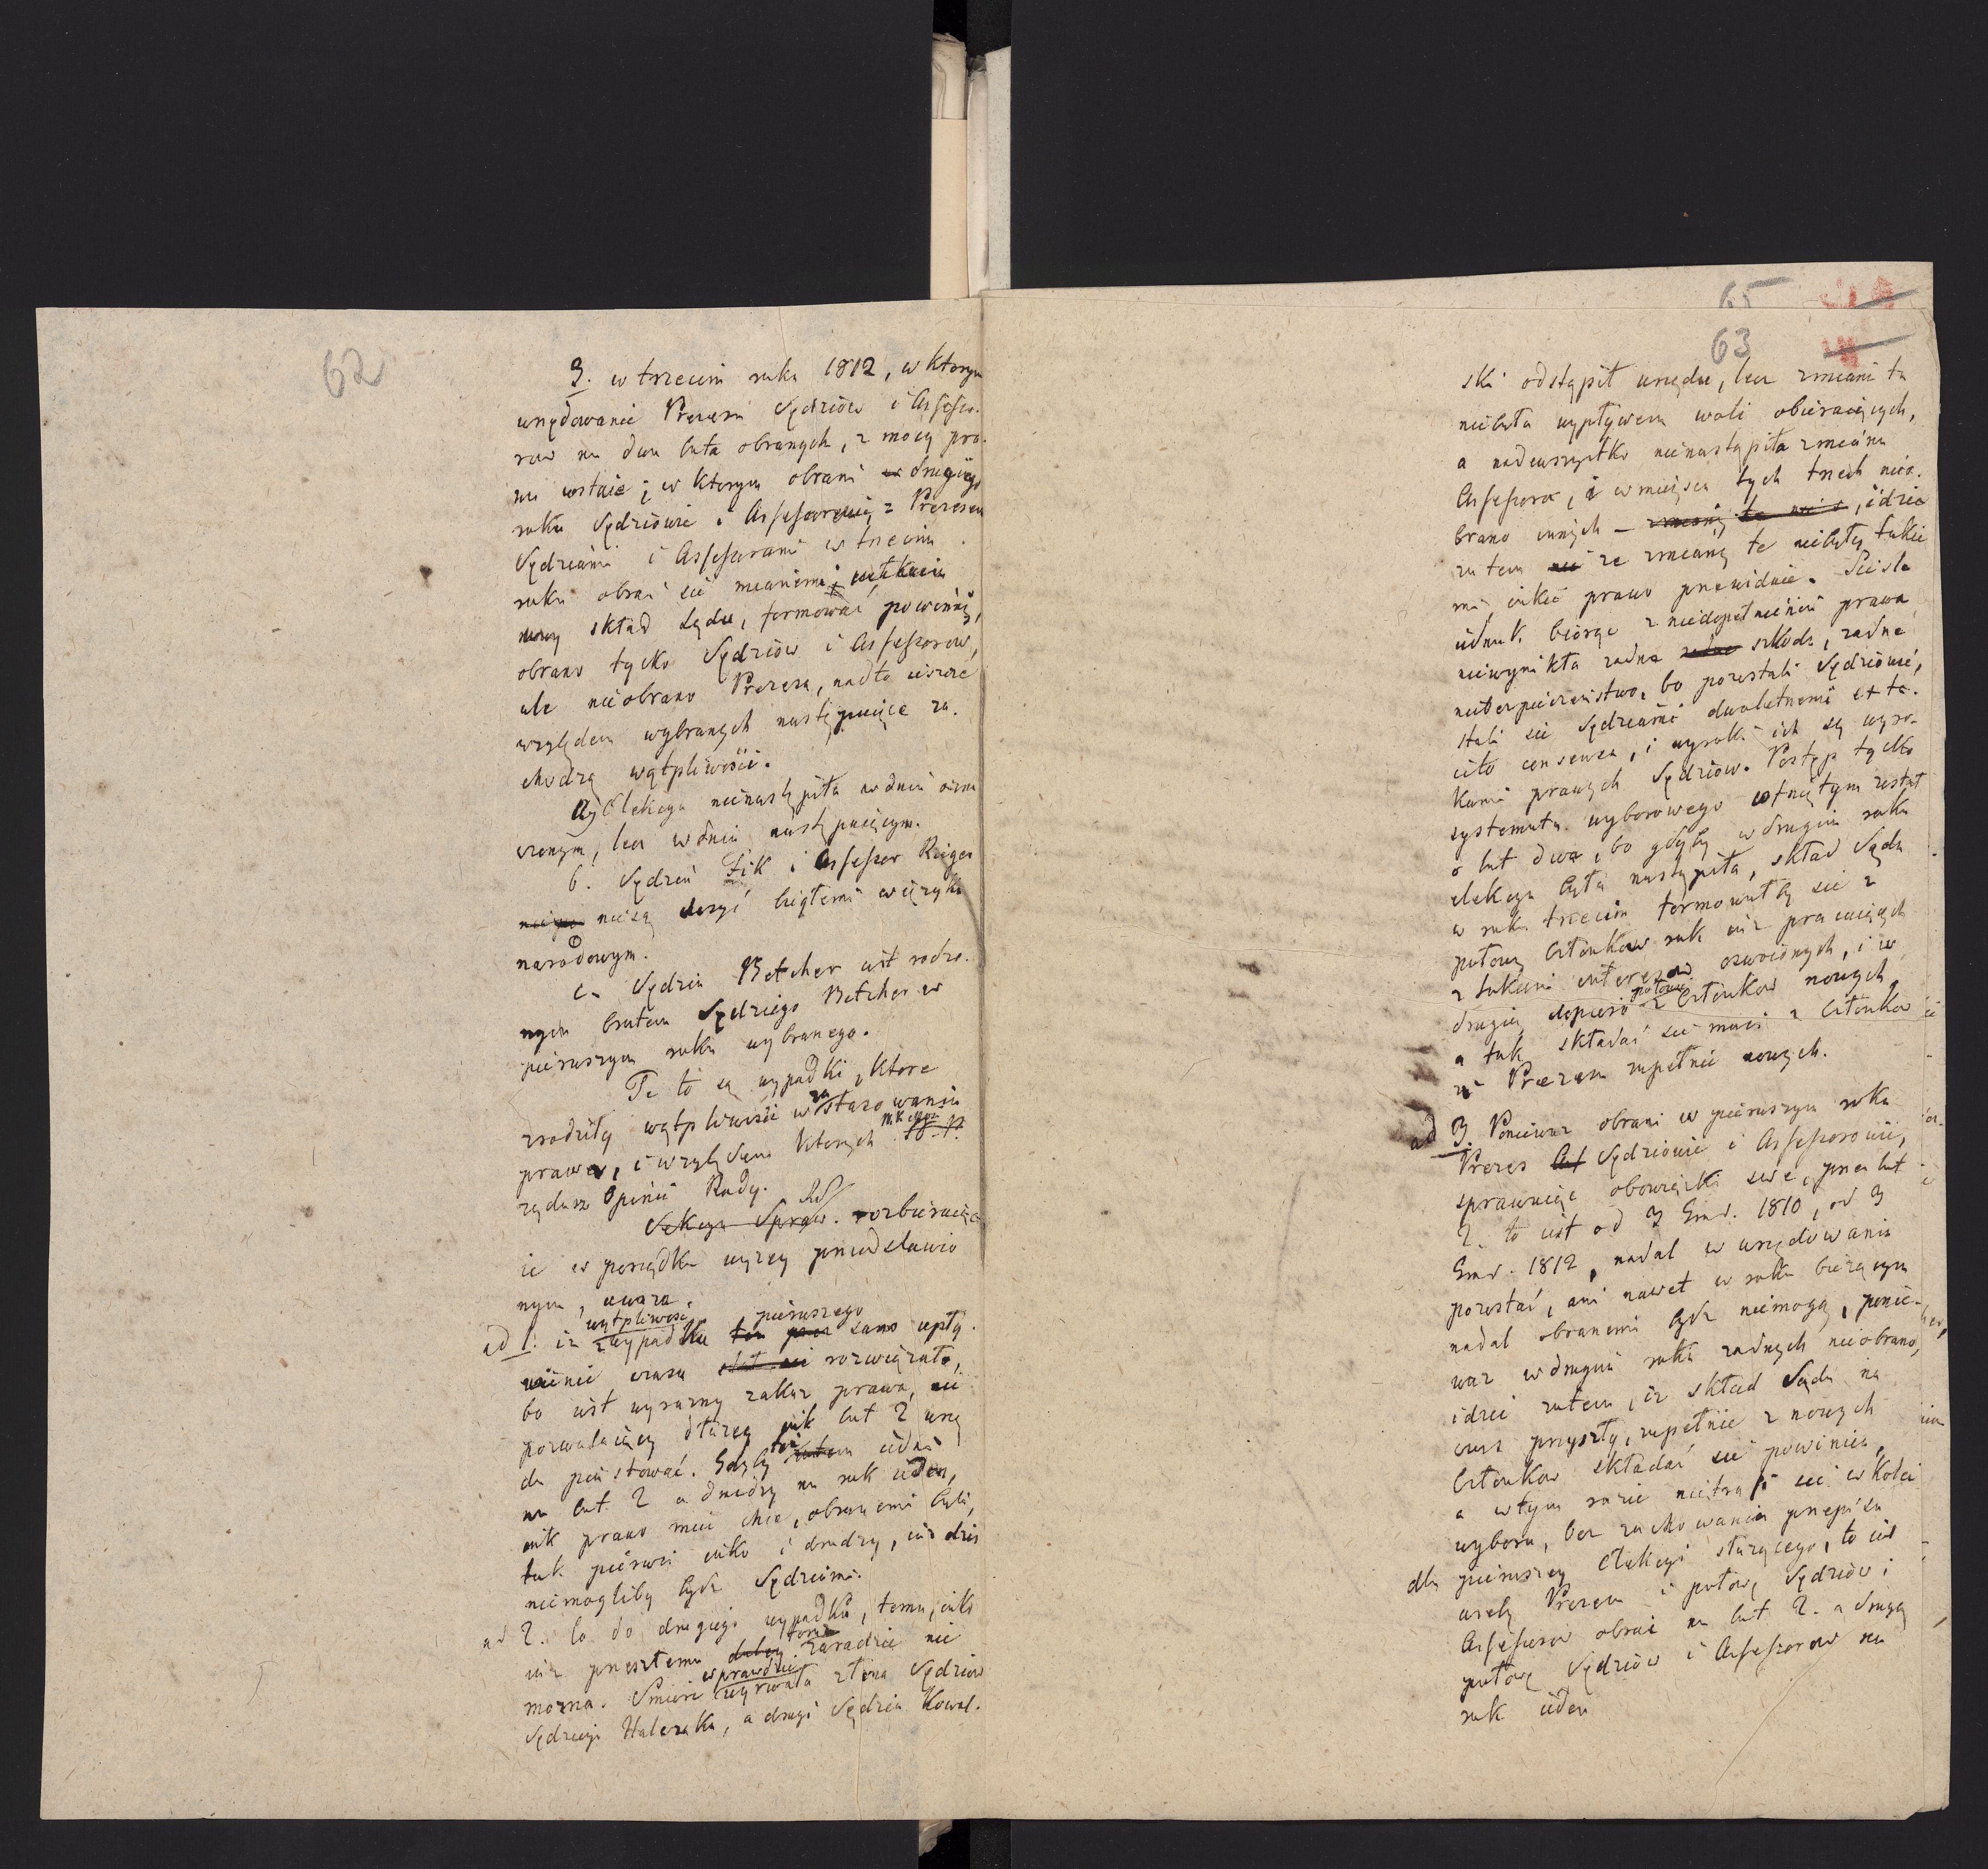 62
3. w trzecim roku 1812, w ktorym
urzędowanie Prezesa Sędziow i Assesso-
row na dwa lata obranych, z mocy pra-
wa ustaie; w ktorym obrani w drugiego
roku Sędziowie i Assessorowie z Prezesem
Sędziami i Assessorami w trzecim
roku obrać się maiącemi,
nowy skład Sądu, formować powinni,
obrano tylko Sędziow i Assessorow,
ale nieobrano Prezesa, nadto ieszcze
względem wybranych następuiące za-
chodzą wątpliwości.
a) Elekcya nienastąpiła w dniu ozna
czonym, lecz w dniu następuiącym.
b. Sędzia Fik i Assessor Rieger
niesą dosyć biegłemi w ięzyku
narodowym.
c. Sędzia Betcher iest rodzo-
nym bratem Sędziego Betcher w
pierwszym roku wybranego.
Te to są wypadki, ktore
zrodziły wątpliwości w zastosowaniu
prawa, i względem ktorych
żąda Opinii Rady.
Sekcya Spraw. rozbieraiąc
ie w porządku wyżey przedstawio
nym, uważa.
wątpliwość pierwszego
ad 1. iż z wypadku samo upły-
wienie czasu rozwiązało,
bo iest wyraźny zakaz prawa, nie
pozwalaiący dłużey iak lat 2 urzę
du piastować. Gdyby iedni
na lat 2 a drudzy na rok ieden,
iak prawo mieć chce, obranemi byli,
tak pierwsi iako i drudzy, iuż dziś
niemogliby bydź Sędziami.
ad 2. Co do drugiego wypadku, temu, iako
iuż przeszłemu teraz zaradzić nie
można. Smierć wprawdzie wyrwała z łona Sędziow
Sędziego Halczaka, a drugi Sędzia Kowal-
65
63
ski odstąpił urzędu, lecz zmiana ta
niebyła wypływem woli obieraiących,
a nadewszystko nienastąpiła zmiana
Assessora, i w mieysce tych trzech nieo-
brano innych – idzie
zatem że zmiany te niebyły takie
iakie prawo przewiduie. Ściśle
iednak biorąc z niedopełnienia prawa
niewynikła żadna szkoda, żadne
niebezpieczeństwo, bo pozostali Sędziowie,
stali się Sędziami dwuletnemi ex ta-
cito consensu, i wyroki ich są wyro-
kami prawych Sędziow. Postęp tylko
systematu wyborowego cofniętym został
o lat dwa, bo gdyby w drugim roku
elekcya była nastąpiła, skład Sądu
w roku trzecim formowałby się z
połowy Członkow rok iuż pracuiących
z tokiem interesow oswoionych, i w
drugiey dopiero połowie z Członkow nowych,
a tak składać się musi z Członkow
i Prezesa zupełnie nowych.
ad 3. Ponieważ obrani w pierwszym roku
Prezes Sędziowie i Assessorowie,
sprawuiąc obowiązki swe, przez lat
2. to iest od 3 Grud. 1810, do 3
Grud. 1812, nadal w urzędowaniu
pozostać, ani nawet w roku bieżącym
nadal obranemi bydź niemogą, ponie-
waż w drugim roku żadnych nieobrano,
idzie zatem, iż skład Sądu na
czas przyszły, zupełnie z nowych
Członkow składać się powinien,
a w tym razie nietrafi się w kolei
wyboru, bez zachowania przepisu
dla pierwszey Elekcyi służącego, to iest
ażeby Prezesa i połowę Sędziow i
Assessorow obrać na lat 2. a drugą
połowę Sędziow i Assessorow na
rok ieden